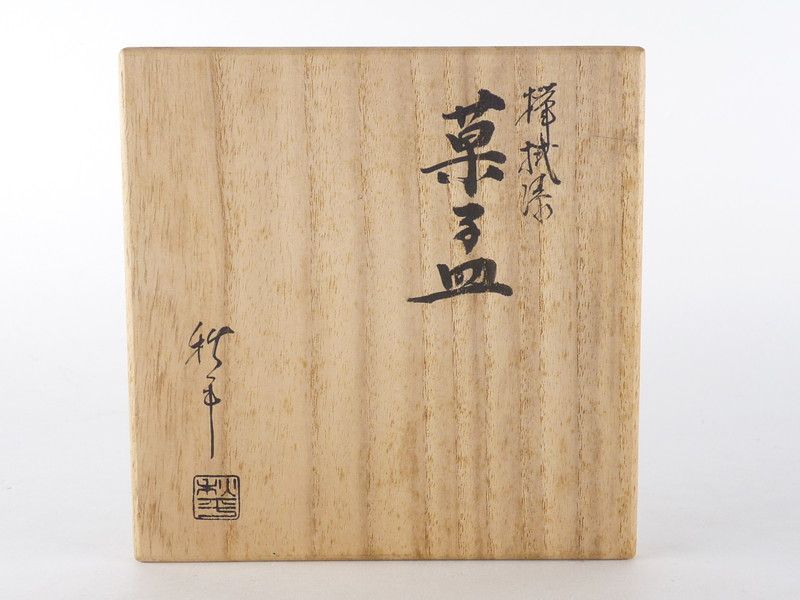 欅拭漆
菓子皿
秋平
秋平